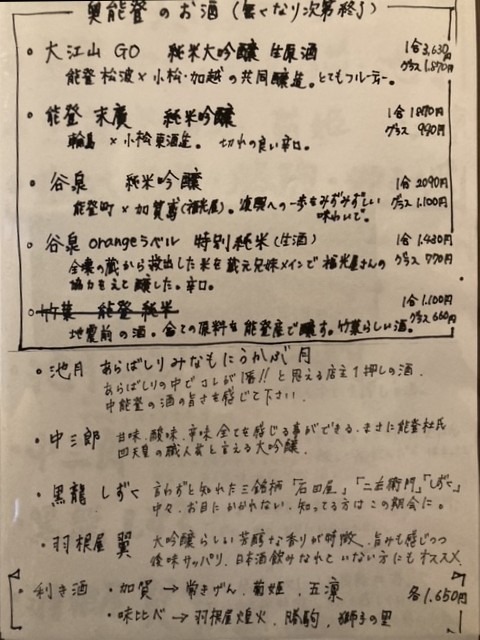 奥能登のお酒(無くなり次第終了)
・大江山 GO 純米大吟醸 生原酒 1合3,630円
能登 松波×小松・加越の共同醸造。とてもフルーティー。 グラス 1.870円
・能登 末廣 純米吟醸 1合 1870円
輪島 ×小松東酒造。 切れの良い辛口。 グラス 990円
・谷泉 純米吟醸 1合 2090円
能登町×加賀鳶(福光屋)。復興への一歩をみずみずしい グラス 1.100円
味わいで。
・谷泉 orangeラベル 特別純米(生酒) 1合 1.430円
全壊の蔵から救出した米を蔵元兄妹メインで福光屋さんの グラス 770円
協力をえて醸した。辛口。
・竹葉 能登 純米 1合 1.100円
地震前の酒。全ての原料を能登産で醸す。竹葉らしい酒。 グラス 660円
・池月 あらばしり みなもにうかぶ月
あらばしりの中でコレが1番!!と思える店主1押しの酒。
中能登の酒の旨さを感じて下さい。
・中三郎 甘味、酸味、辛味、全てを感じる事ができる、まさに能登杜氏
四天皇の職人芸と言える大吟醸
・黒龍 しずく 言わずと知れた三銘柄「石田屋」「二左衛門」「しずく」
中々、お目にかかれない、知ってる方はこの期会に。
・羽根屋 翼 大吟醸らしい芳醇な香りが特徴、旨みも感じつつ
後味サッパリ、日本酒飲みなれていない方にもオススメ
・利き酒 ・加賀→常きげん、菊姫、五凛 各1.650円
・味比べ→羽根屋煌火、勝駒、獅子の里